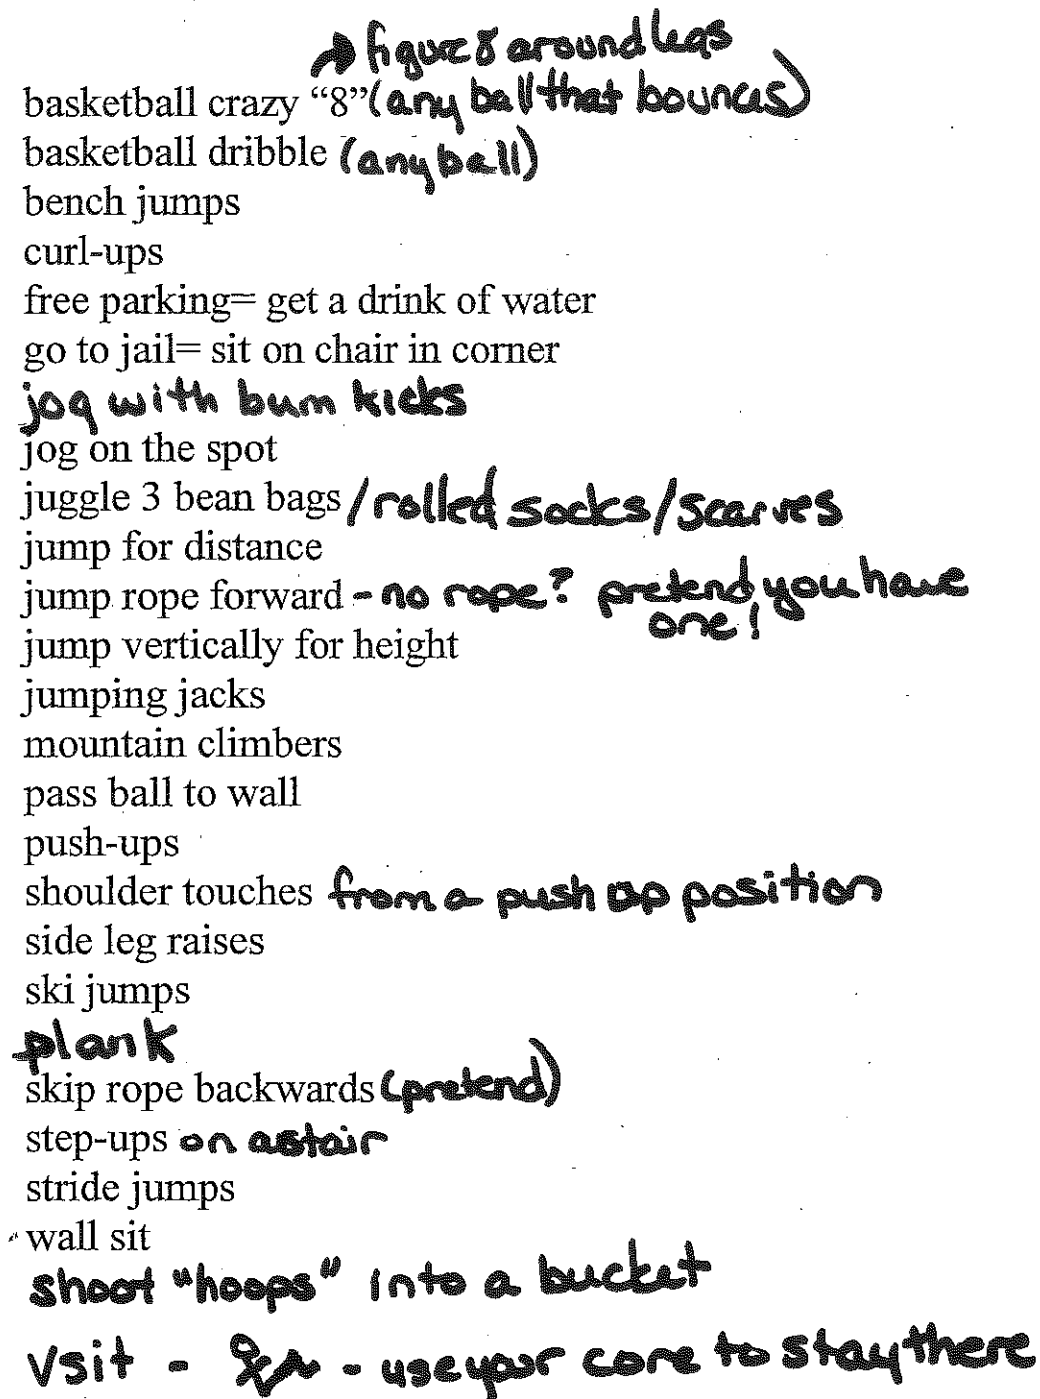 → figure 8 around legs
basketball crazy “8” (any ball that bounces)
basketball dribble (any ball)
bench jumps
curl-ups
free parking= get a drink of water
go to jail= sit on chair in corner
jog with bum kicks
jog on the spot
juggle 3 bean bags /rolled socks/scarves
jump for distance
jump rope forward - no rope? pretend you have
one!
jump vertically for height
jumping jacks
mountain climbers
pass ball to wall
push-ups
shoulder touches from a push up position
side leg raises
ski jumps
plank
skip rope backwards (pretend)
step-ups on a stair
stride jumps
wall sit
shoot "hoops" into a bucket
V sit - - use your core to stay there